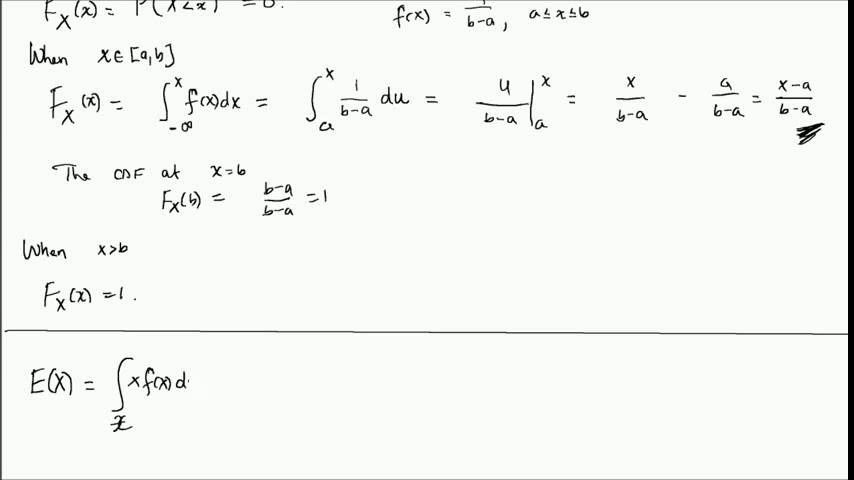 F_X(x) = P(X<x) = 0.
f(x) = 1/(b-a), a≤x≤b
When x∈[a,b]
F_X(x) = ∫_{-∞}^{x} f(x)dx = ∫_{a}^{x} 1/(b-a) du = u/(b-a) |_{a}^{x} = x/(b-a) - a/(b-a) = (x-a)/(b-a)
The CDF at x=b
F_X(b) = (b-a)/(b-a) = 1
When x>b
F_X(x) = 1.
E(X) = ∫_{x} x f(x) d